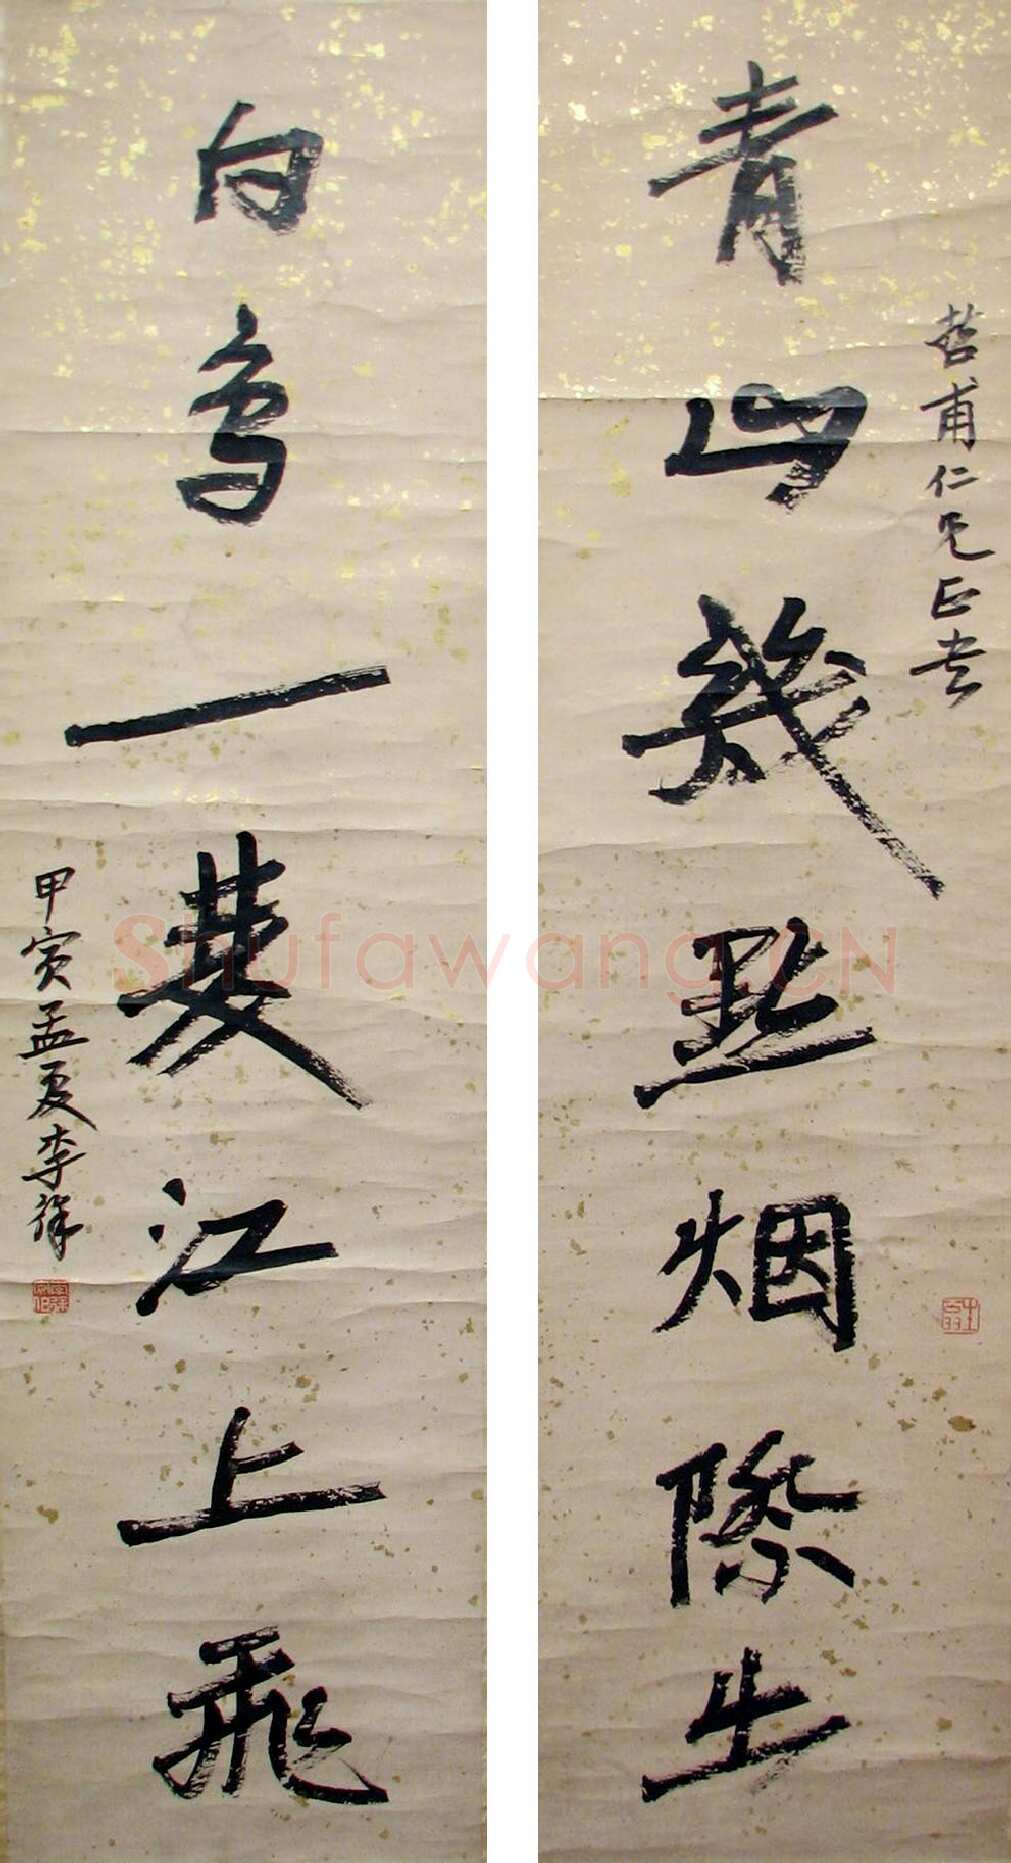 哲甫仁兄正
青山幾點烟際生
白鳥一雙江上飛
甲寅孟夏李
Shufawang.CN